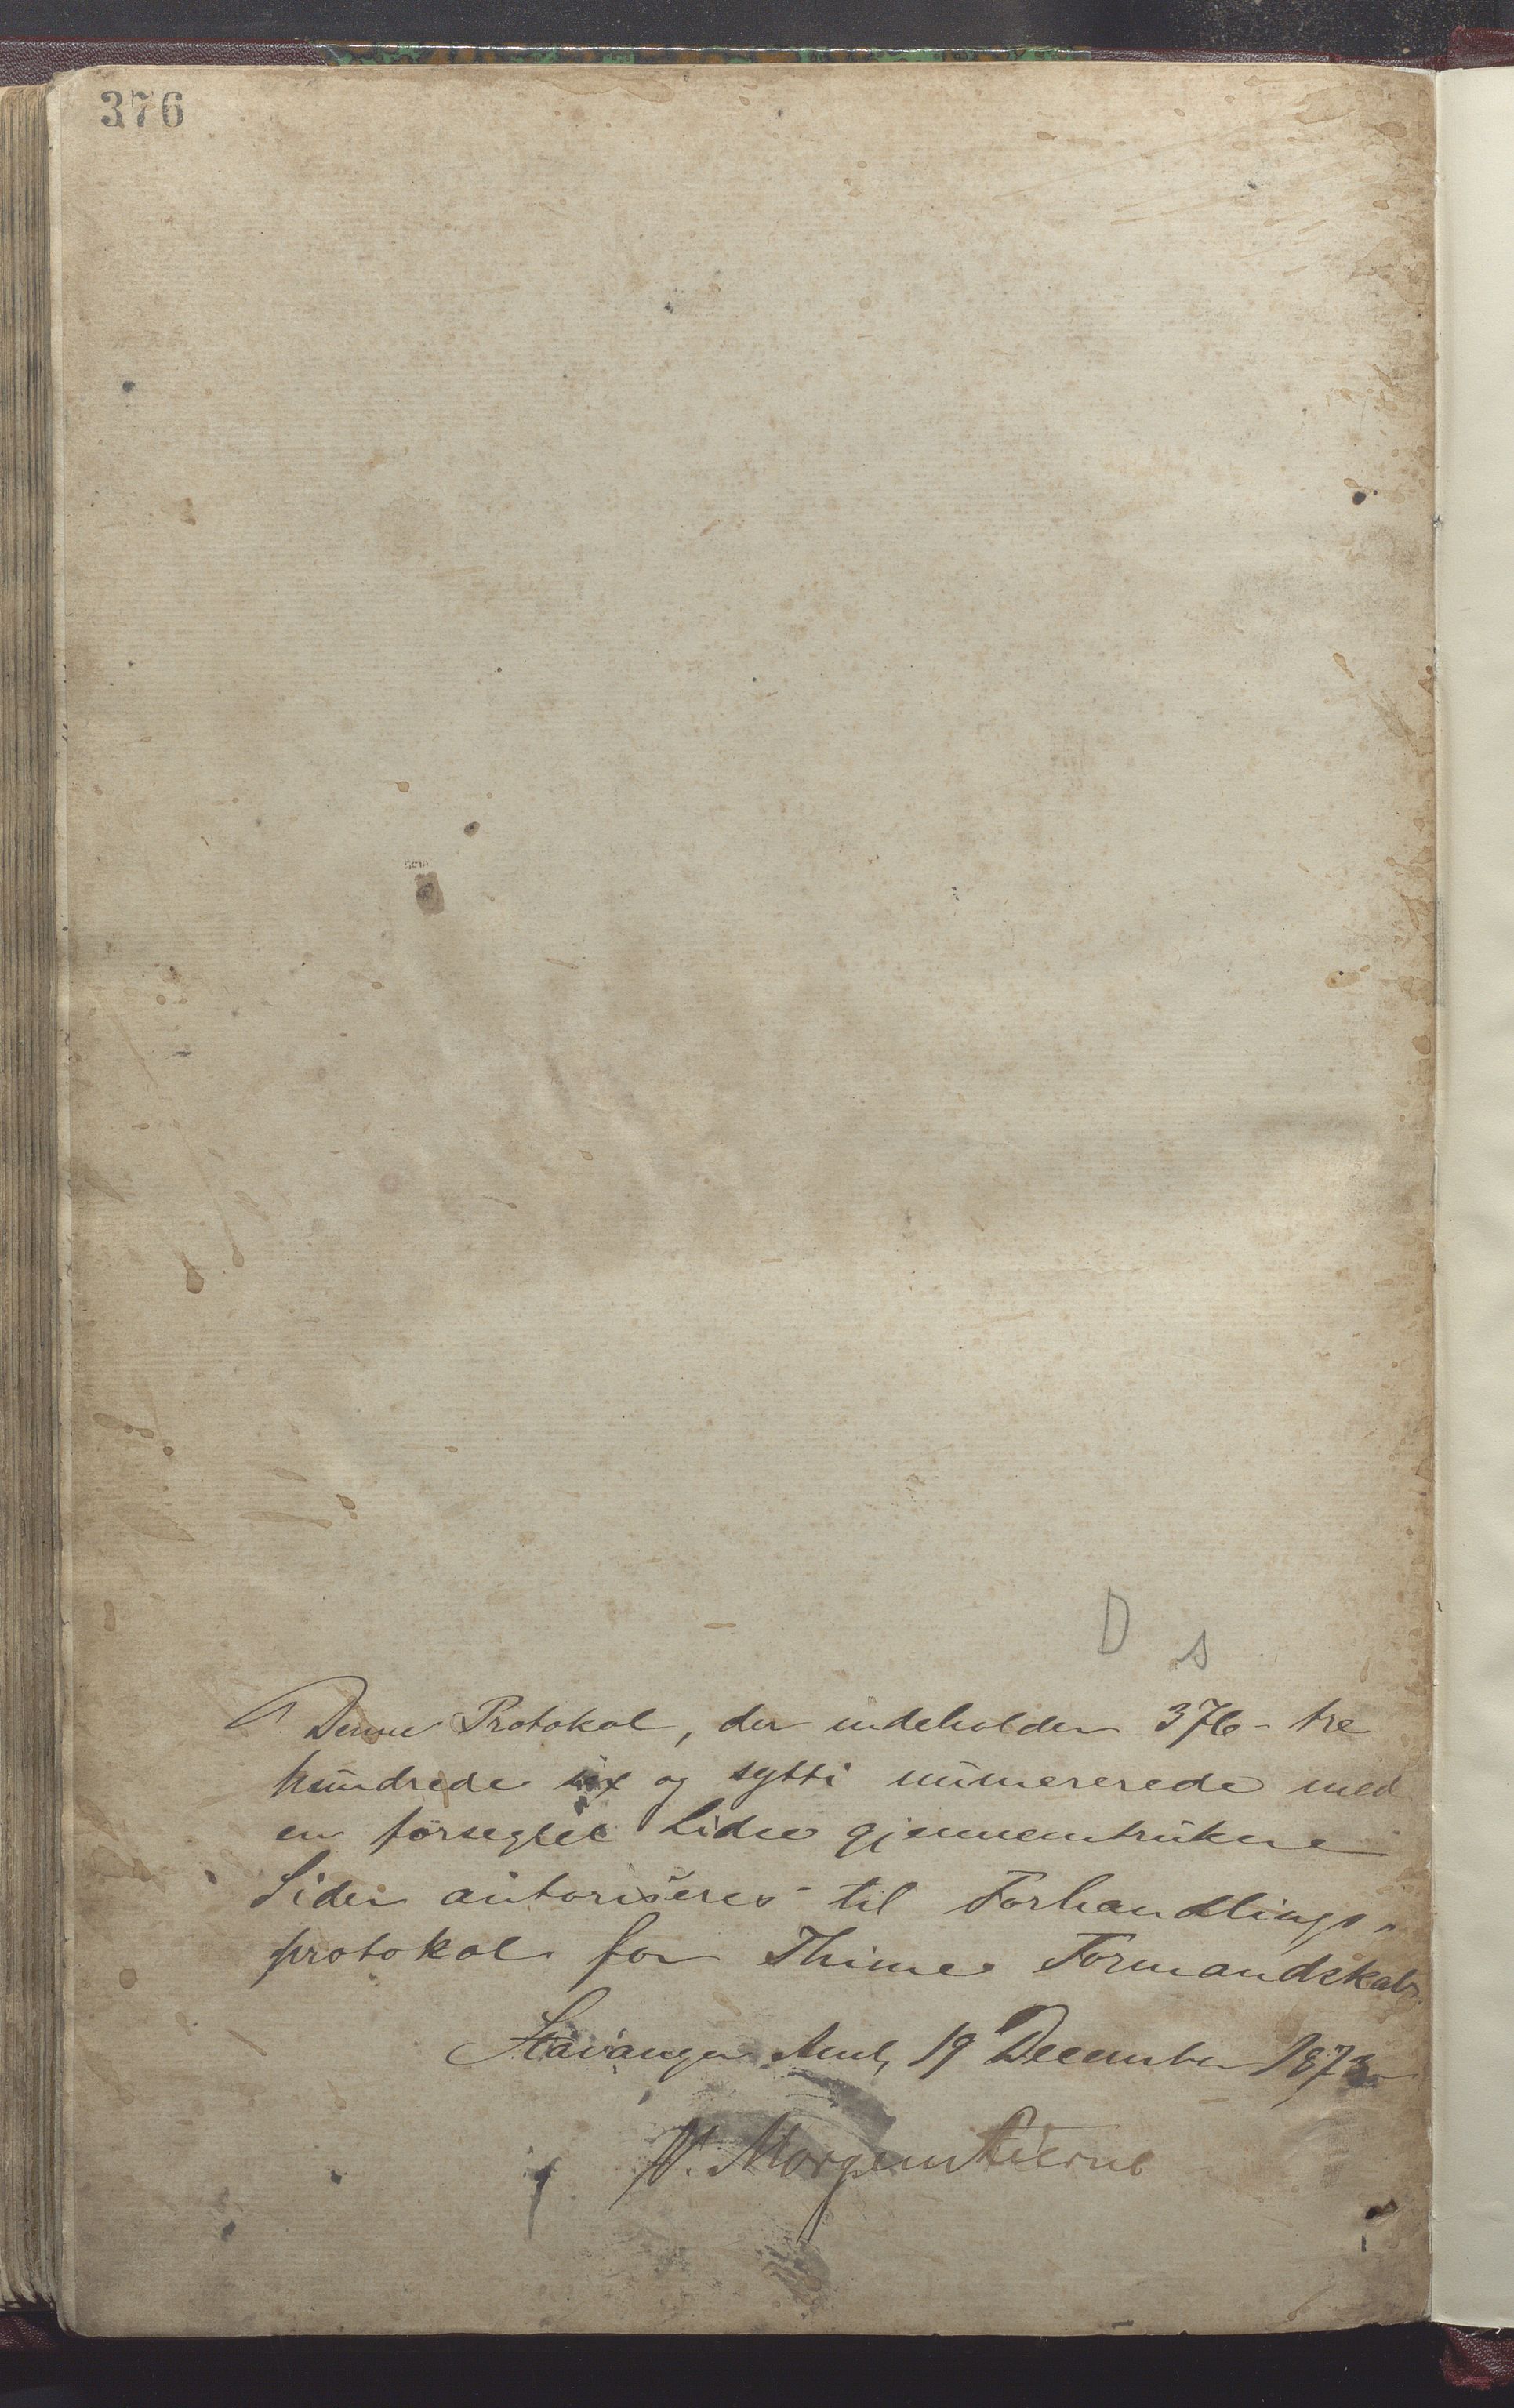 376
D s
Denne Protokol, der indeholder 376 - tre
hundrede sex og sytti numererede med
en forseglet Lidse gjennemtrukne
Sider autoriseres til Forhandlings-
protokol for Thime Formandskab.
Stavanger Amt, 19 December 1873
W. Morgenstierne